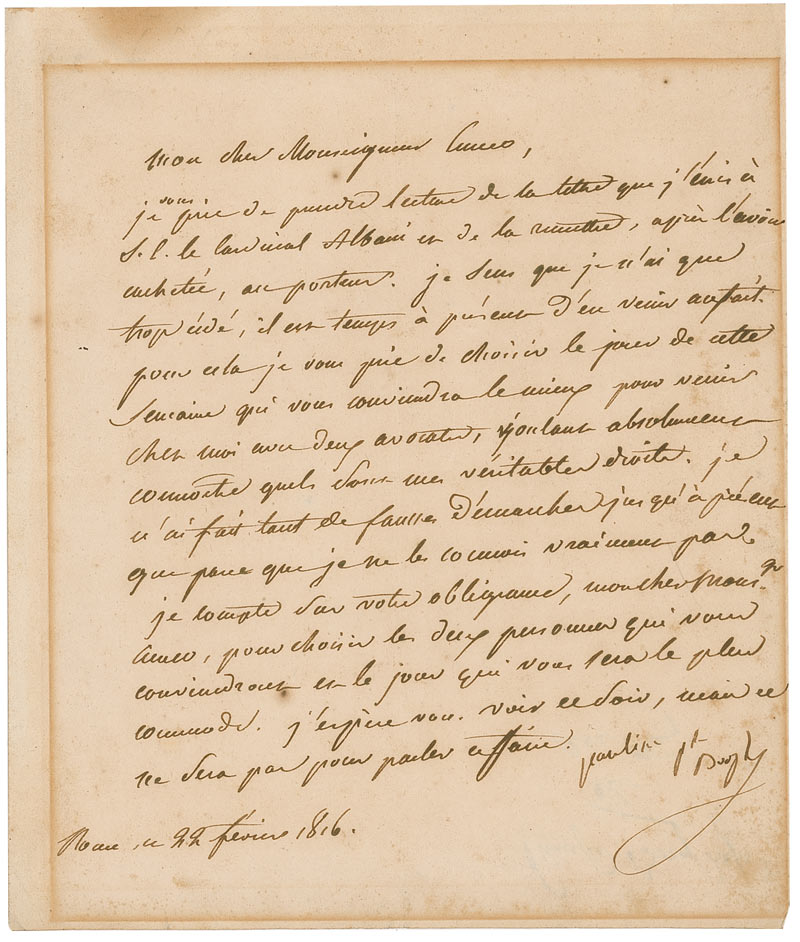 mon cher Monseigneur Cuneo,
je vous prie de prendre lecture de la lettre que j'écris à
S. E. le Cardinal Albani et de la remettre, après l'avoir
cachetée, au porteur. je sens que je n'ai que
trop cédé, il est temps à présent d'en venir au fait.
pour cela je vous prie de choisir le jour de cette
semaine qui vous conviendra le mieux pour venir
chez moi avec deux avocats, voulant absolument
connoitre quels sont mes véritables droits. je
n'ai fait tant de fausses démarches jusqu'à présent
que parce que je ne les connois vraiment pas.
je compte sur votre obligeance, mon cher Monsgr
Cuneo, pour choisir les deux personnes qui vous
conviendront et le jour qui vous sera le plus
commode. j'espère vous voir ce soir, mais ce
ne sera pas pour parler affaire.
pauline Psse Borghese
Rome, ce 22 février 1816.